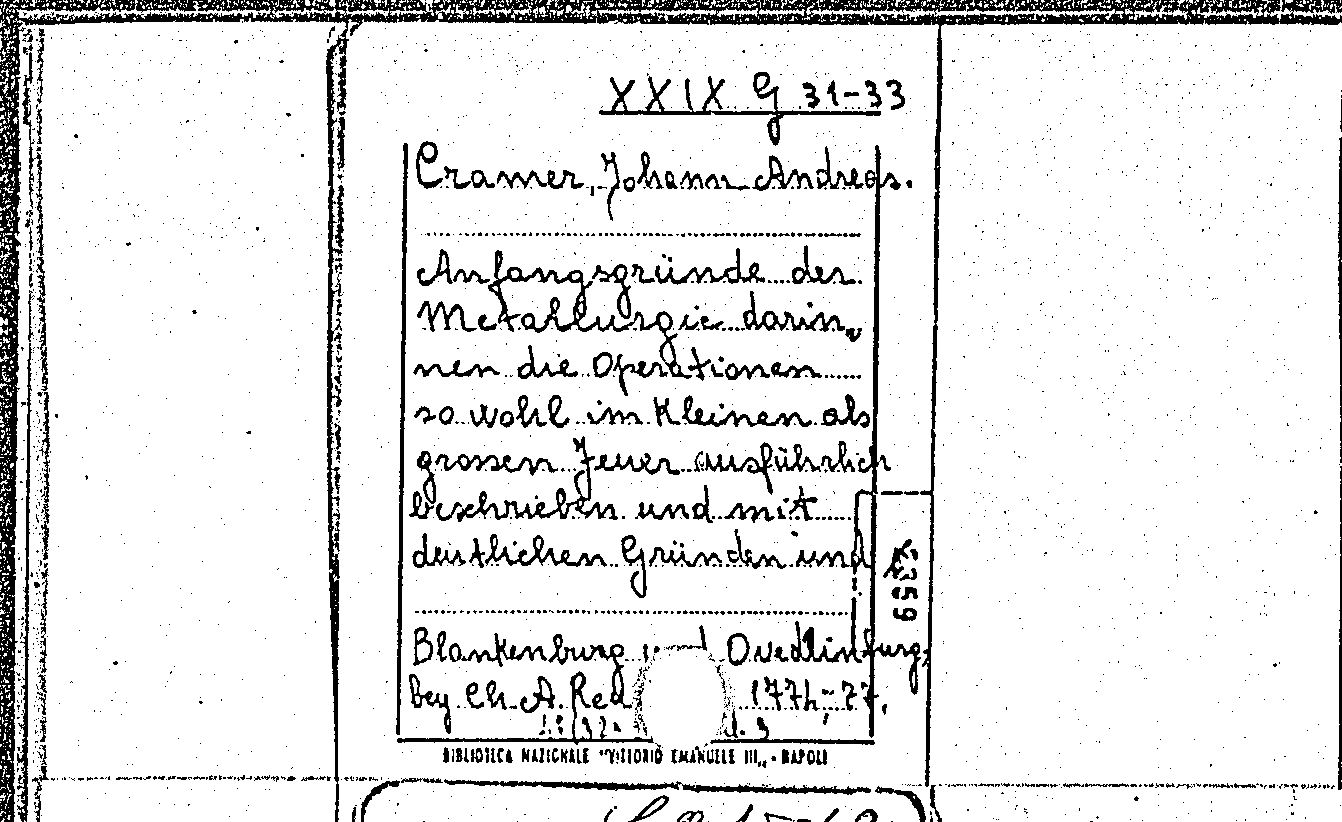 XXIX G 31-33
Cramer, Johann Andreas.
Anfangsgründe der
Metallurgie darin„
nen die Operationen
so wohl im Kleinen als
grossen Feuer ausführlich
beschrieben und mit
deutlichen Gründen und
2359
Blankenburg Quedlinburg,
bey Ch. A. 1774-77.
BIBLIOTECA NAZIONALE "VITTORIO EMANUELE III„ - NAPOLI